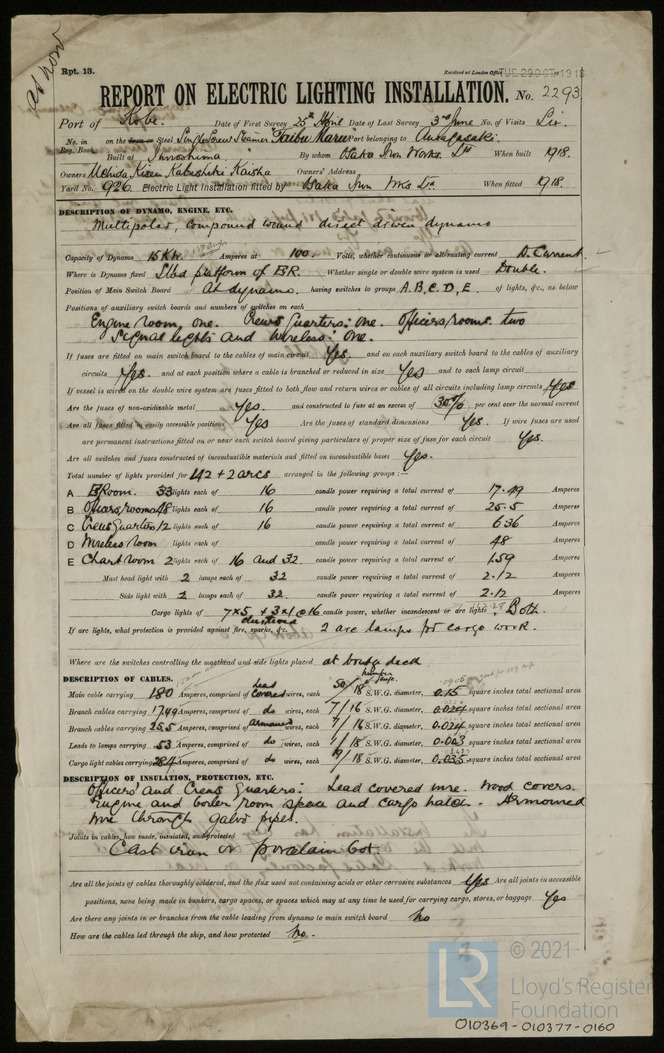 as now
Rpt. 13.
Received at London Office TUE. 29 OCT. 1918
REPORT ON ELECTRIC LIGHTING INSTALLATION. No. 2293
Port of Kobe. Date of First Survey 25th April Date of Last Survey 3rd June No. of Visits Six.
No. in Reg. Book on the Iron or Steel Single Screw Steamer "Taibu Maru" Port belonging to
Built at Innoshima By whom Osaka Iron Works. Ld When built 1918.
Owners Uchida Kisen Kabushiki Kaisha Owners' Address
Yard No. 926. Electric Light Installation fitted by Osaka Iron Wks Ld. When fitted 1918.
DESCRIPTION OF DYNAMO, ENGINE, ETC.
Multipolar, compound wound direct driven dynamo
Capacity of Dynamo 15 Kw. Amperes at 100. Volts, whether continuous or alternating current D. Current.
Where is Dynamo fixed Stbd platform of E.R. Whether single or double wire system is used Double.
Position of Main Switch Board at dynamo. having switches to groups A, B, C, D, E of lights, &c., as below
Positions of auxiliary switch boards and numbers of switches on each
Engine room, one. Crews Quarters: one. Officers rooms two
Signal lights and wireless: one.
If fuses are fitted on main switch board to the cables of main circuit Yes. and on each auxiliary switch board to the cables of auxiliary
circuits Yes. and at each position where a cable is branched or reduced in size Yes and to each lamp circuit
If vessel is wired on the double wire system are fuses fitted to both flow and return wires or cables of all circuits including lamp circuits Yes
Are the fuses of non-oxidizable metal Yes. and constructed to fuse at an excess of per cent over the normal current
Are all fuses fitted in easily accessible positions Yes Are the fuses of standard dimensions Yes. If wire fuses are used
are permanent instructions fitted on or near each switch board giving particulars of proper size of fuse for each circuit Yes.
Are all switches and fuses constructed of incombustible materials and fitted on incombustible bases Yes.
Total number of lights provided for 142 + 2 arcs arranged in the following groups :—
A E. Room. 33 lights each of 16 candle power requiring a total current of 17.49 Amperes
B Officers rooms 48 lights each of 16 candle power requiring a total current of 25.5 Amperes
C Crews Quarters 12 lights each of 16 candle power requiring a total current of 6.36 Amperes
D Wireless room lights each of candle power requiring a total current of 48 Amperes
E Chart room 2 lights each of 16 and 32 candle power requiring a total current of 1.59 Amperes
Mast head light with 2 lamps each of 32 candle power requiring a total current of 2.12 Amperes
Side light with 2 lamps each of 32. candle power requiring a total current of 2.12 Amperes
Cargo lights of 7 x 5 + 3 x 1 @ 16 candle power, whether incandescent or arc lights Both.
clustered
If arc lights, what protection is provided against fire, sparks, &c. 2 arc lamps for cargo work.
Where are the switches controlling the masthead and side lights placed at bridge deck
DESCRIPTION OF CABLES.
Main cable carrying 180 Amperes, comprised of Lead covered wires, each S.W.G. diameter, 0.15 square inches total sectional area
Branch cables carrying 17.49 Amperes, comprised of do wires, each 7/16 S.W.G. diameter, 0.024 square inches total sectional area
Branch cables carrying 25.5 Amperes, comprised of armoured wires, each 7/16 S.W.G. diameter, 0.024 square inches total sectional area
Leads to lamps carrying .53 Amperes, comprised of do wires, each 1/18 S.W.G. diameter, square inches total sectional area
Cargo light cables carrying Amperes, comprised of do wires, each 19/18 S.W.G. diameter, 0.035 square inches total sectional area
DESCRIPTION OF INSULATION, PROTECTION, ETC.
Officers' and Crews Quarters: Lead covered wire. Wood covers.
Engine and boiler room space and cargo hatch - Armoured
wire through galvd pipes.
Joints in cables, how made, insulated, and protected
Cast iron or porcelain box.
Are all the joints of cables thoroughly soldered, and the flux used not containing acids or other corrosive substances Yes Are all joints in accessible
positions, none being made in bunkers, cargo spaces, or spaces which may at any time be used for carrying cargo, stores, or baggage Yes
Are there any joints in or branches from the cable leading from dynamo to main switch board No
How are the cables led through the ship, and how protected No.
LR © 2021
Lloyd's Register
Foundation
010369-010377-0160